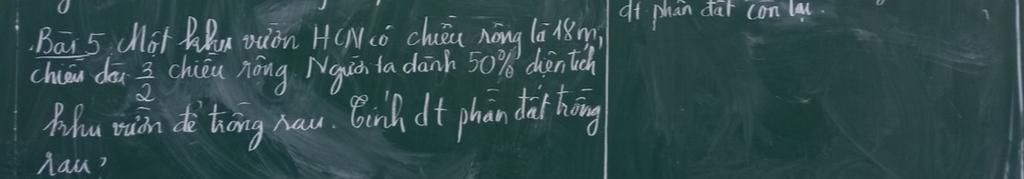 Bài 5. Một khu vườn HCN có chiều rộng là 18m,
chiều dài 3/2 chiều rộng. Người ta dành 50% diện tích
khu vườn để trồng rau. Tính dt phần đất trồng
rau?
dt phần đất còn lại.